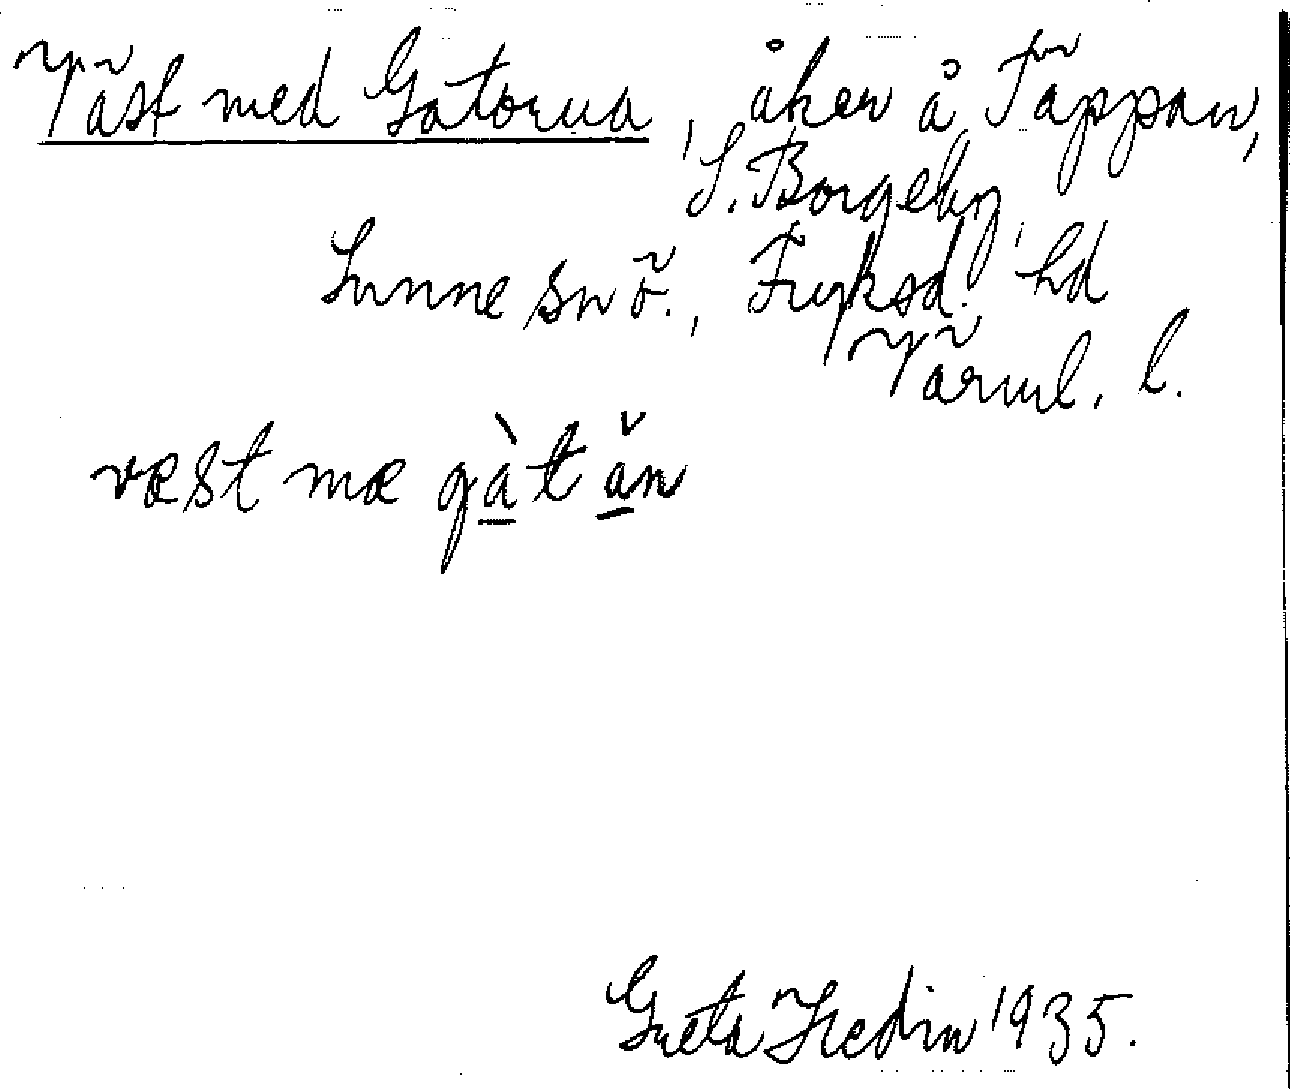 Väst med Gatorna, åker å Täppan,
S. Borgeby
Sunne sn ö., Fryksd. hd
Värml. l.
væst mæ gàt ăn
Greta Hedin 1935.